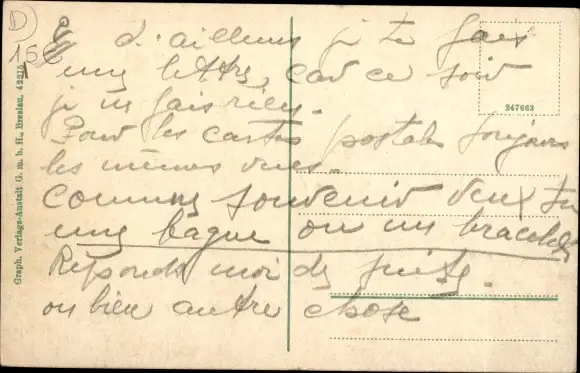 D
15€
d'ailleurs je te fais
une lettre, car ce soir
je ne fais rien.
Pour les cartes postales toujours
les mêmes vues.
comme souvenir veux tu
une bague ou un bracelet
Réponds moi de suite.
ou bien autre chose
247663
Graph. Verlags-Anstalt G. m. b. H., Breslau. 42215